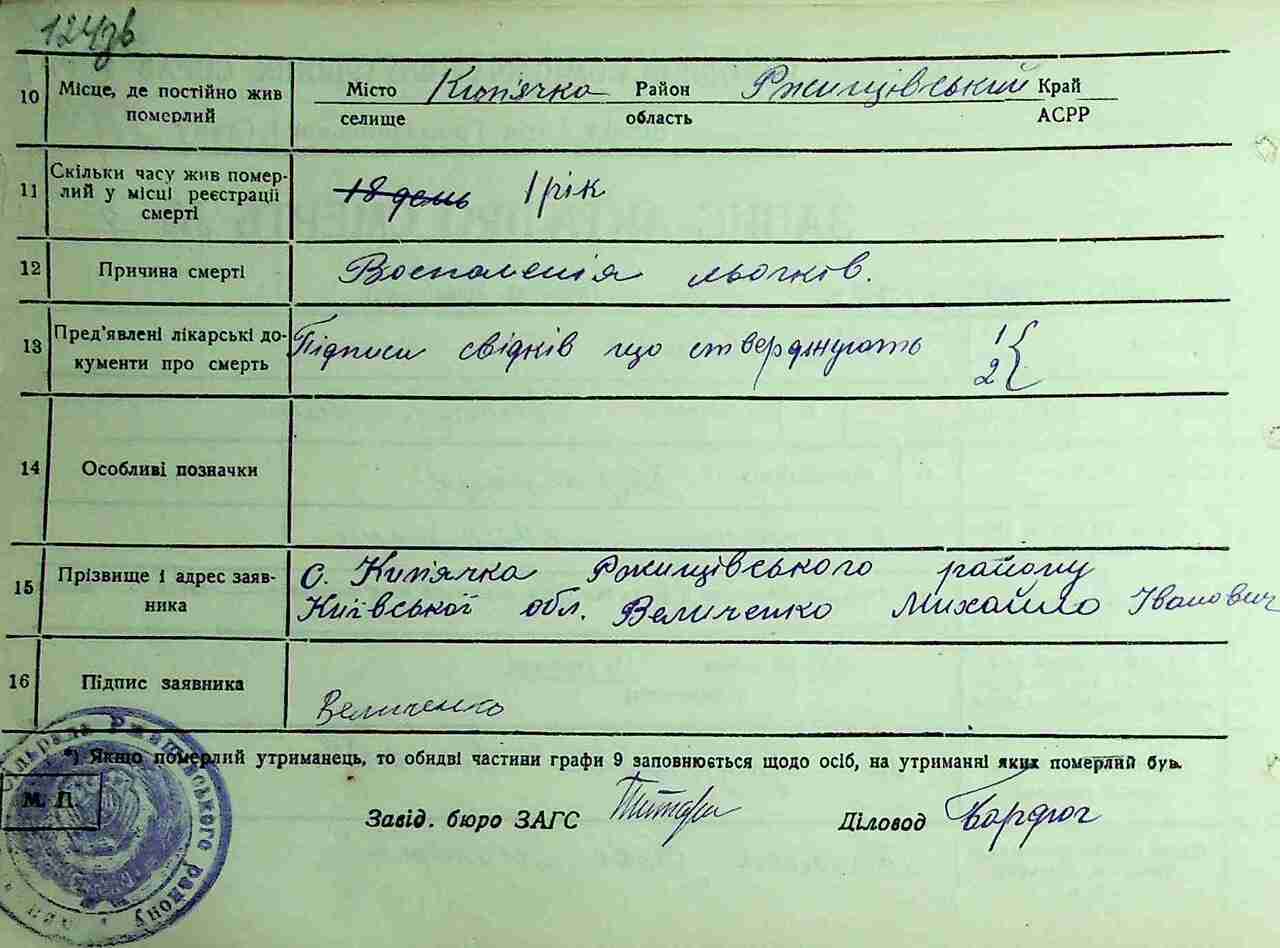 124зв
10 Місце, де постійно жив Місто Кип'ячка Район Ржищівський Край
померлий селище область АСРР
11 Скільки часу жив помер-
лий у місці реєстрації
смерті
18 день 1 рік
12 Причина смерті Воспаленія льогків.
13 Пред'явлені лікарські до-
кументи про смерть
Підписи свідків що стверджують 1
2
14 Особливі позначки
15 Прізвище і адрес заяв-
ника
С. Кип'ячка Ржищівського району
Київської обл. Величенко Михайло Іванович
16 Підпис заявника Величенко
*) Якщо померлий утриманець, то обидві частини графи 9 заповнюється щодо осіб, на утриманні яких померлий був.
М. П.
Завід. бюро ЗАГС Діловод
району